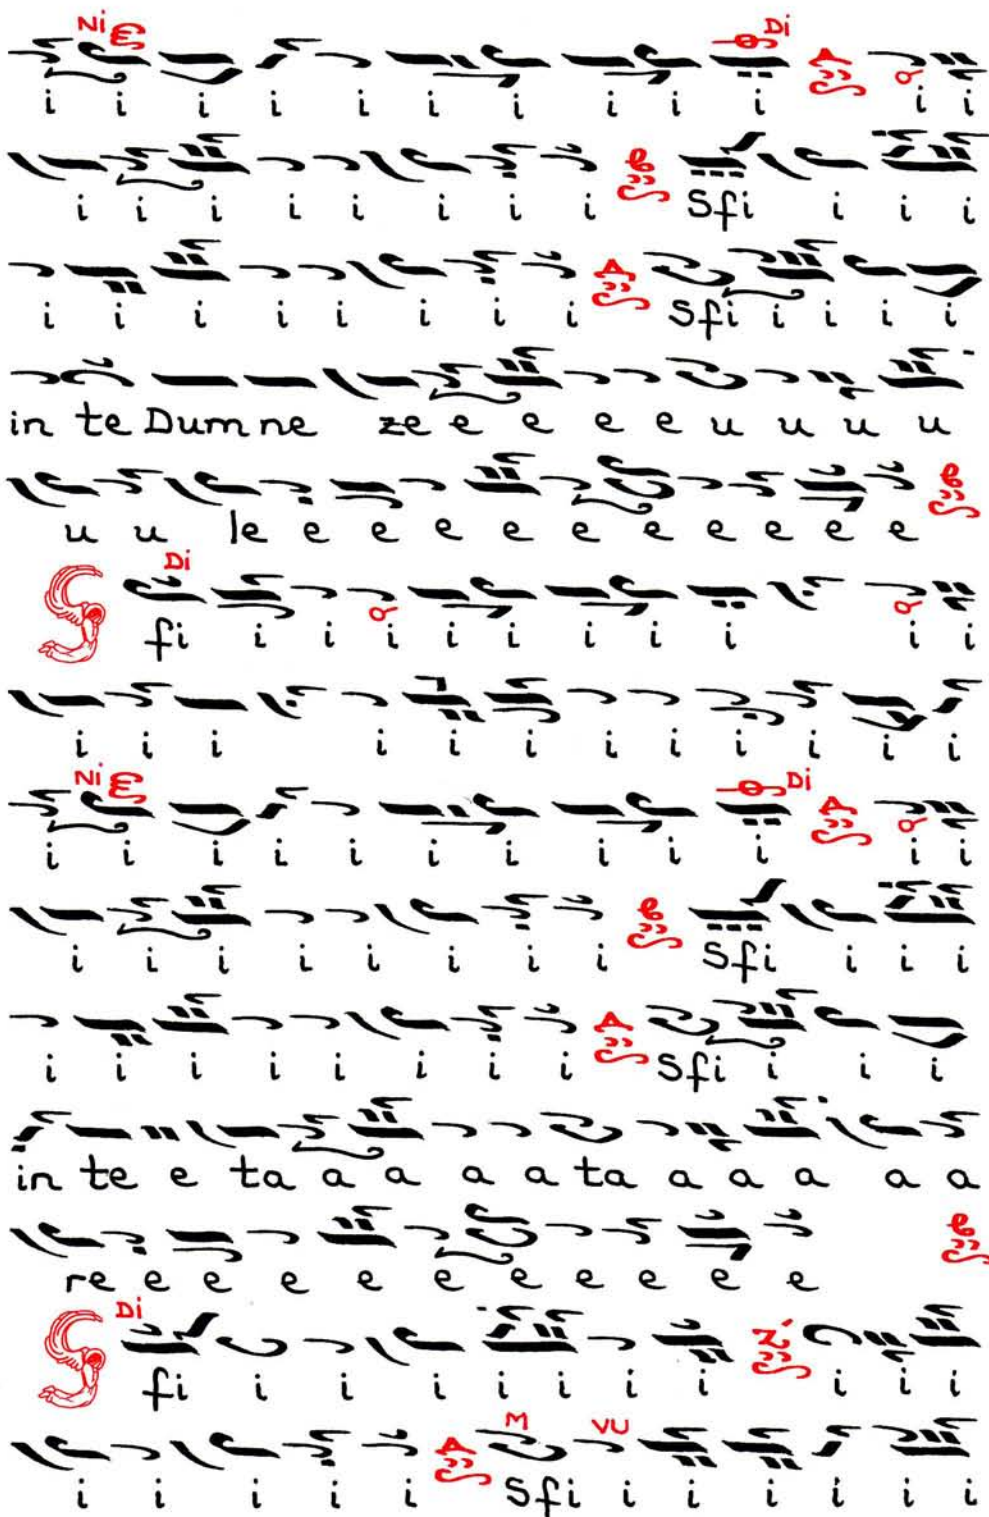 Ni Di
i i i i i i i i i i i i
i i i i i i i i Sfi i i i
i i i i i i i i Sfi i i i i
in te Dumne ze e e e e u u u u
u u le e e e e e e e e e e
Di
Sfi i i i i i i i i i i
i i i i i i i i i i i i
Ni Di
i i i i i i i i i i i i
i i i i i i i i Sfi i i i
i i i i i i i i Sfi i i i
in te e ta a a a a ta a a a a a
re e e e e e e e e e e
Di
Sfi i i i i i i i i i i
M VU
i i i i i Sfi i i i i i